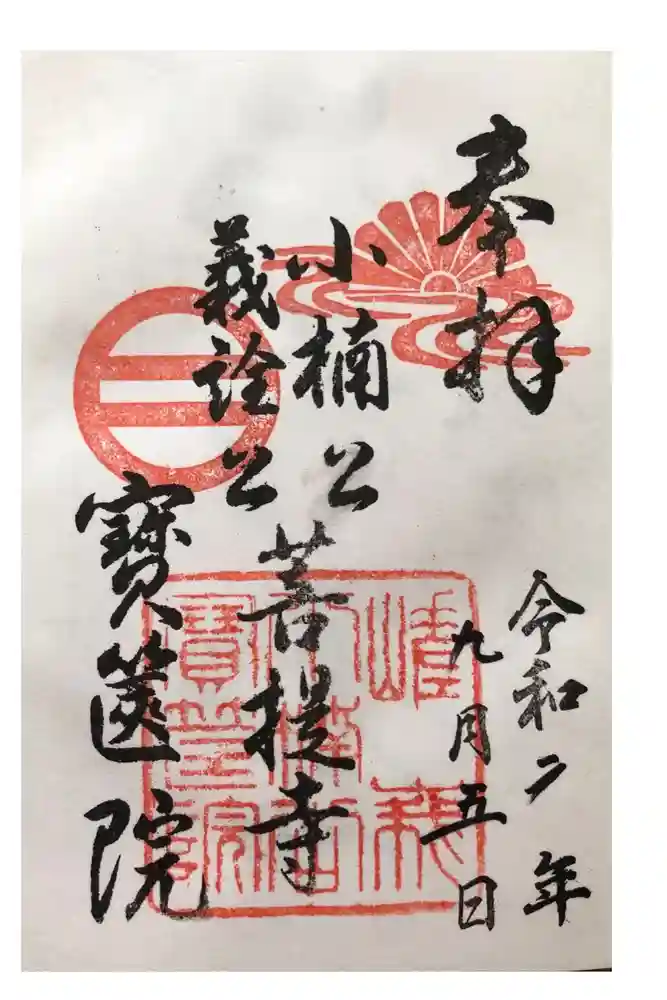 奉拝
令和二年
九月五日
小楠公
義詮公
菩提寺
寶篋院